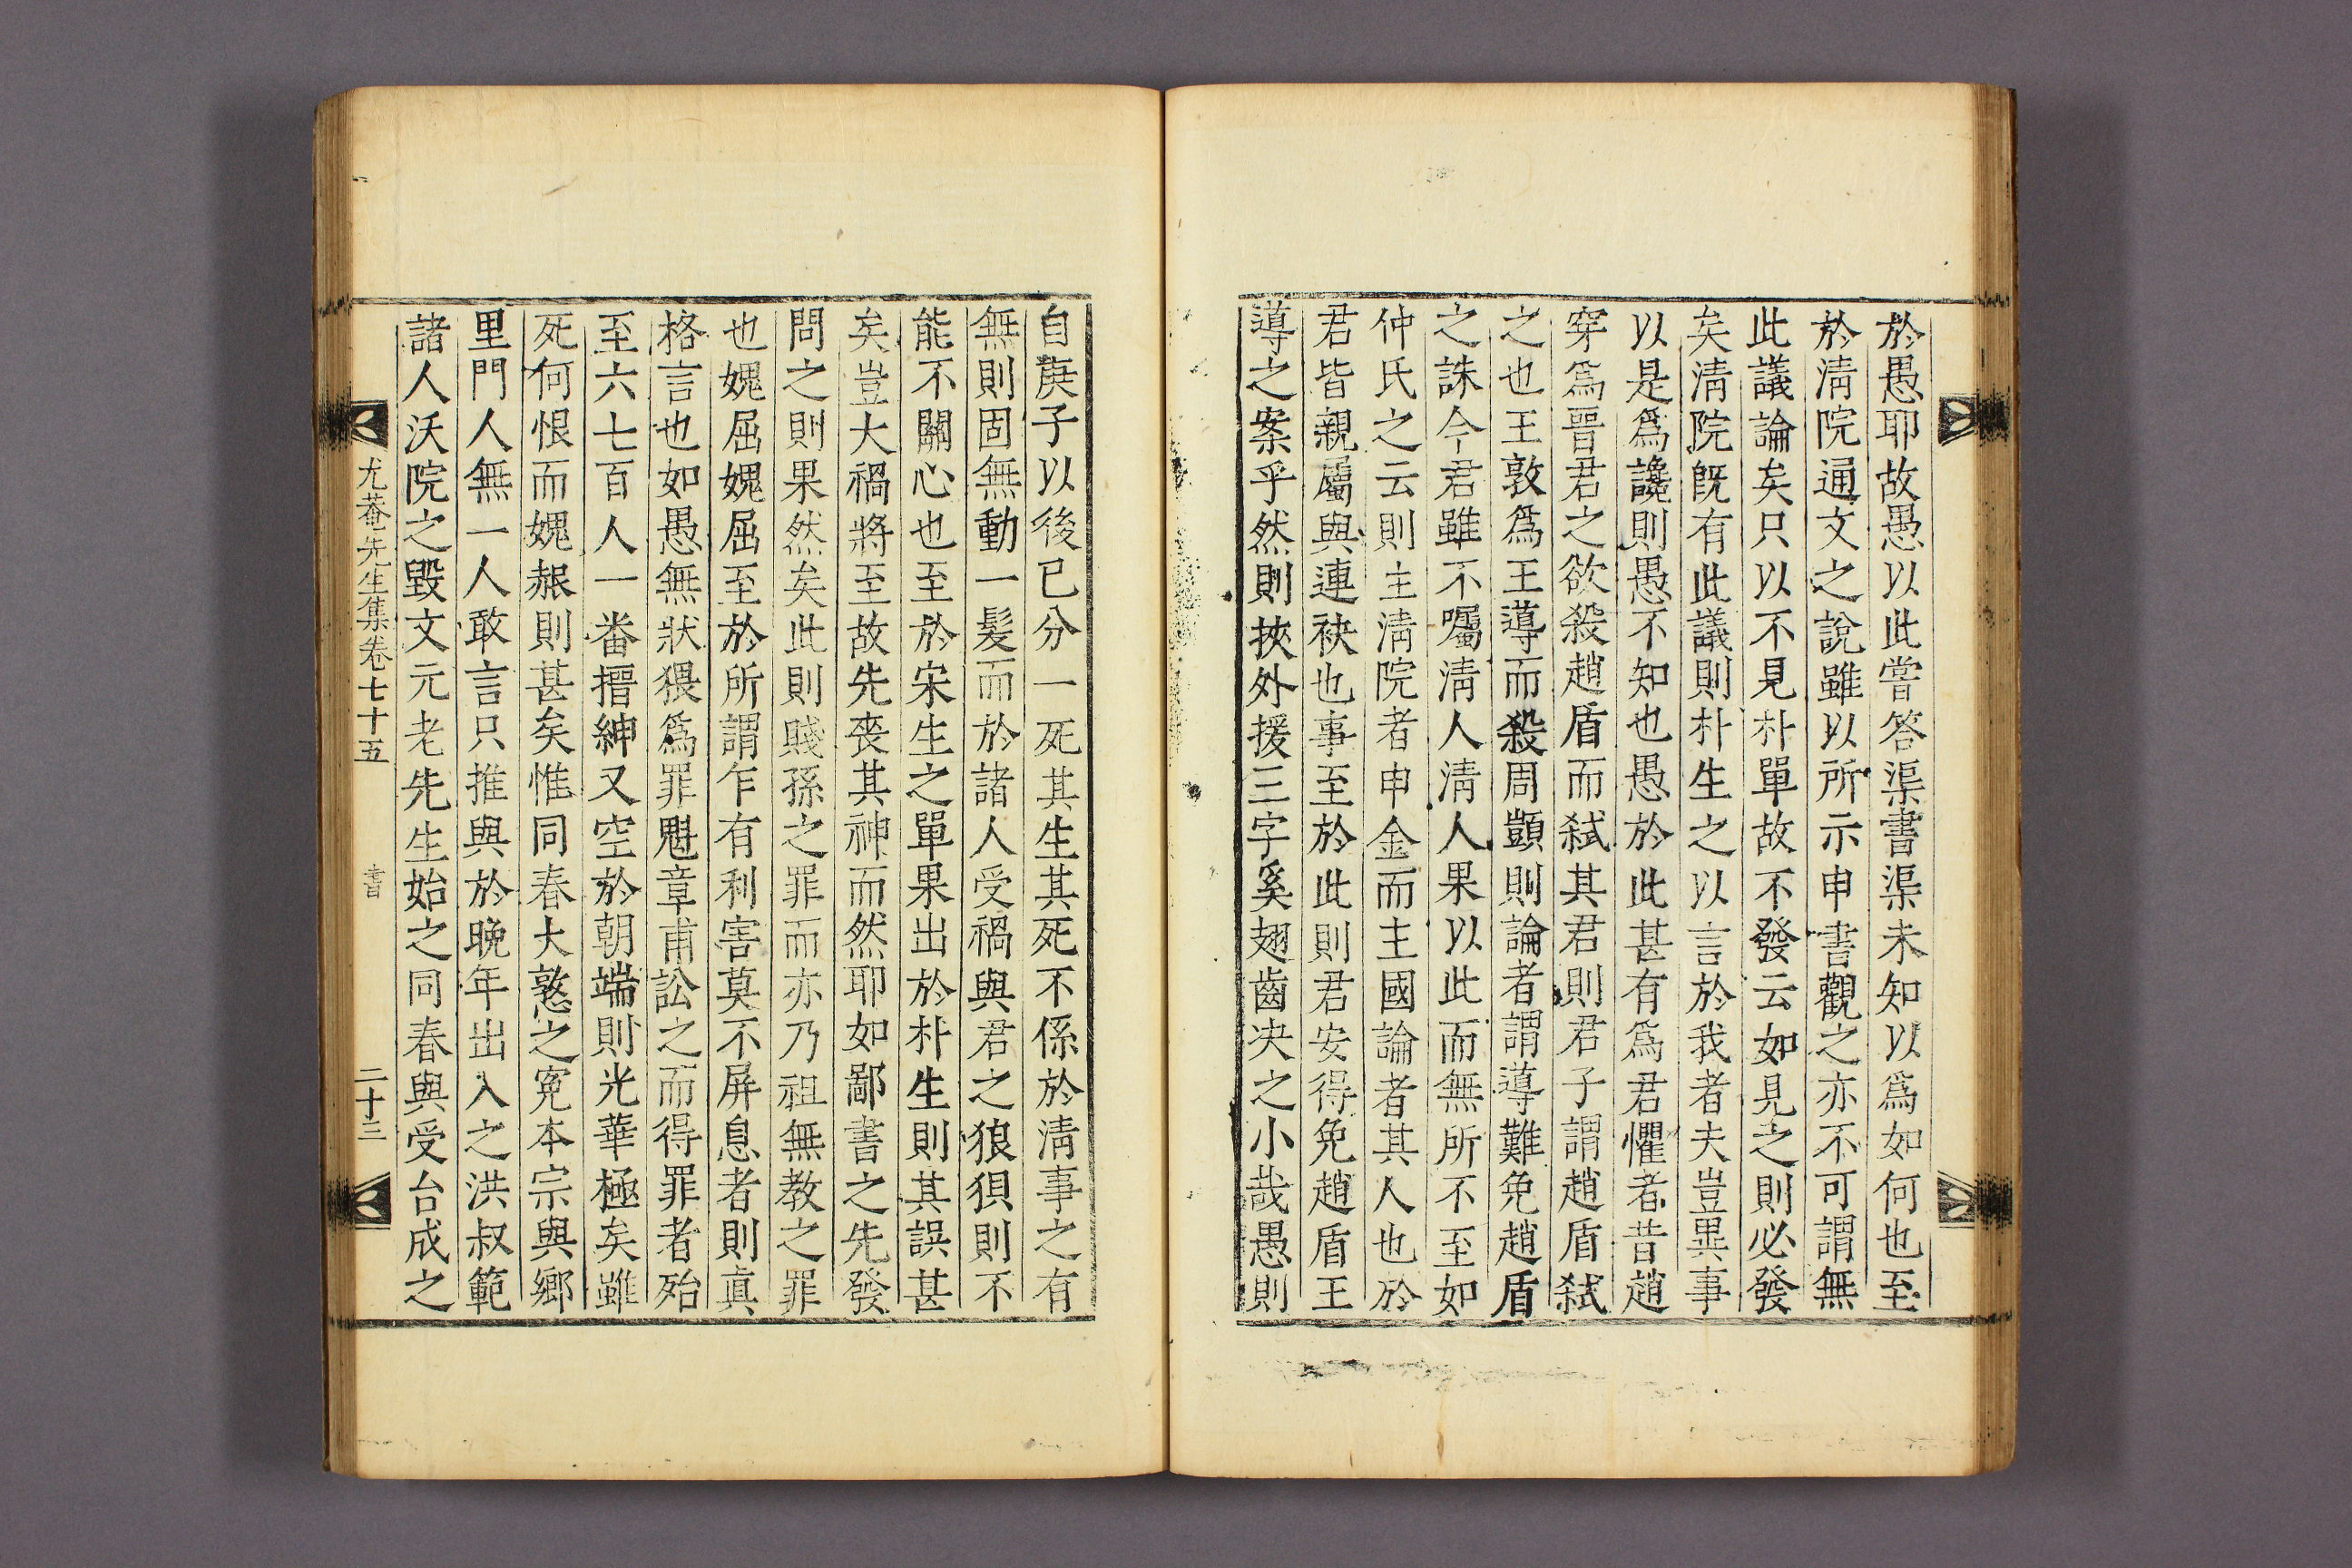 於愚耶故愚以此嘗答渠書渠未知以爲如何也至
於淸院通文之說雖以所示申書觀之亦不可謂無
此議論矣只以不見朴單故不發云如見之則必發
矣淸院旣有此議則朴生之以言於我者夫豈異事
以是爲讒則愚不知也愚於此甚有爲君懼者昔趙
穿爲晉君之欲殺趙盾而弑其君則君子謂趙盾弑
之也王敦爲王導而殺周顗則論者謂導難免趙盾
之誅今君雖不囑淸人淸人果以此而無所不至如
仲氏之云則主淸院者申金而主國論者其人也於
君皆親屬與連袂也事至於此則君安得免趙盾王
導之案乎然則挾外援三字奚翅齒決之小哉愚則
自庚子以後已分一死其生其死不係於淸事之有
無則固無動一髮而於諸人受禍與君之狼狽則不
能不關心也至於宋生之單果出於朴生則其誤甚
矣豈大禍將至故先喪其神而然耶如鄙書之先發
問之則果然矣此則賤孫之罪而亦乃祖無教之罪
也媿屈媿屈至於所謂乍有利害莫不屏息者則眞
格言也如愚無狀猥爲罪魁章甫訟之而得罪者殆
至六七百人一番搢紳又空於朝端則光華極矣雖
死何恨而媿赧則甚矣惟同春大憝之寃本宗與鄕
里門人無一人敢言只推與於晩年出入之洪叔範
諸人沃院之毀文元老先生始之同春與受台成之
尤菴先生集卷七十五 書 二十三